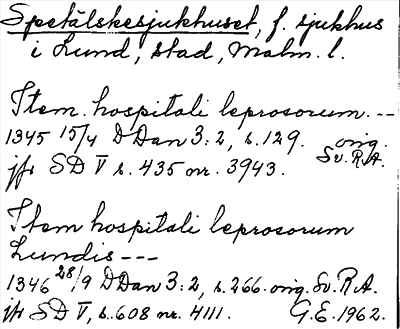 Spetälskesjukhuset, f. sjukhus
i Lund, stad, Malm. l.
Item hospitali leprosorum. --
1345 15/4 DDan 3:2, s. 129. orig. Sv. R.A.
jfr SD V s. 435 nr. 3943.
Item hospitali leprosorum
Lundis ---
1346 28/9 DDan 3:2, s. 266. orig. Sv. R.A.
jfr SD V, s. 608 nr. 4111. G.E. 1962.